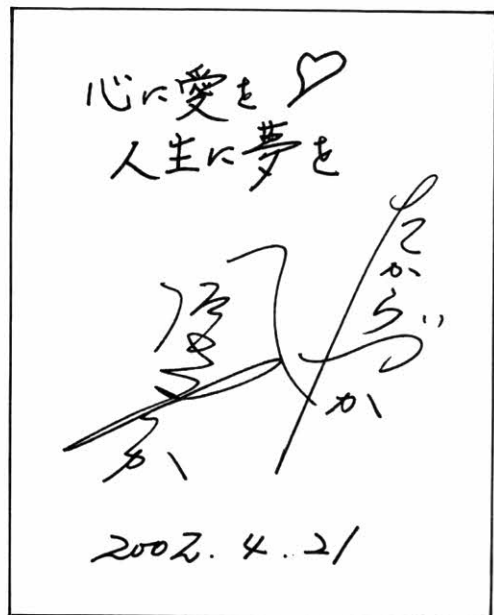 心に愛を ♡
人生に夢を
たからづか
2002.4.21